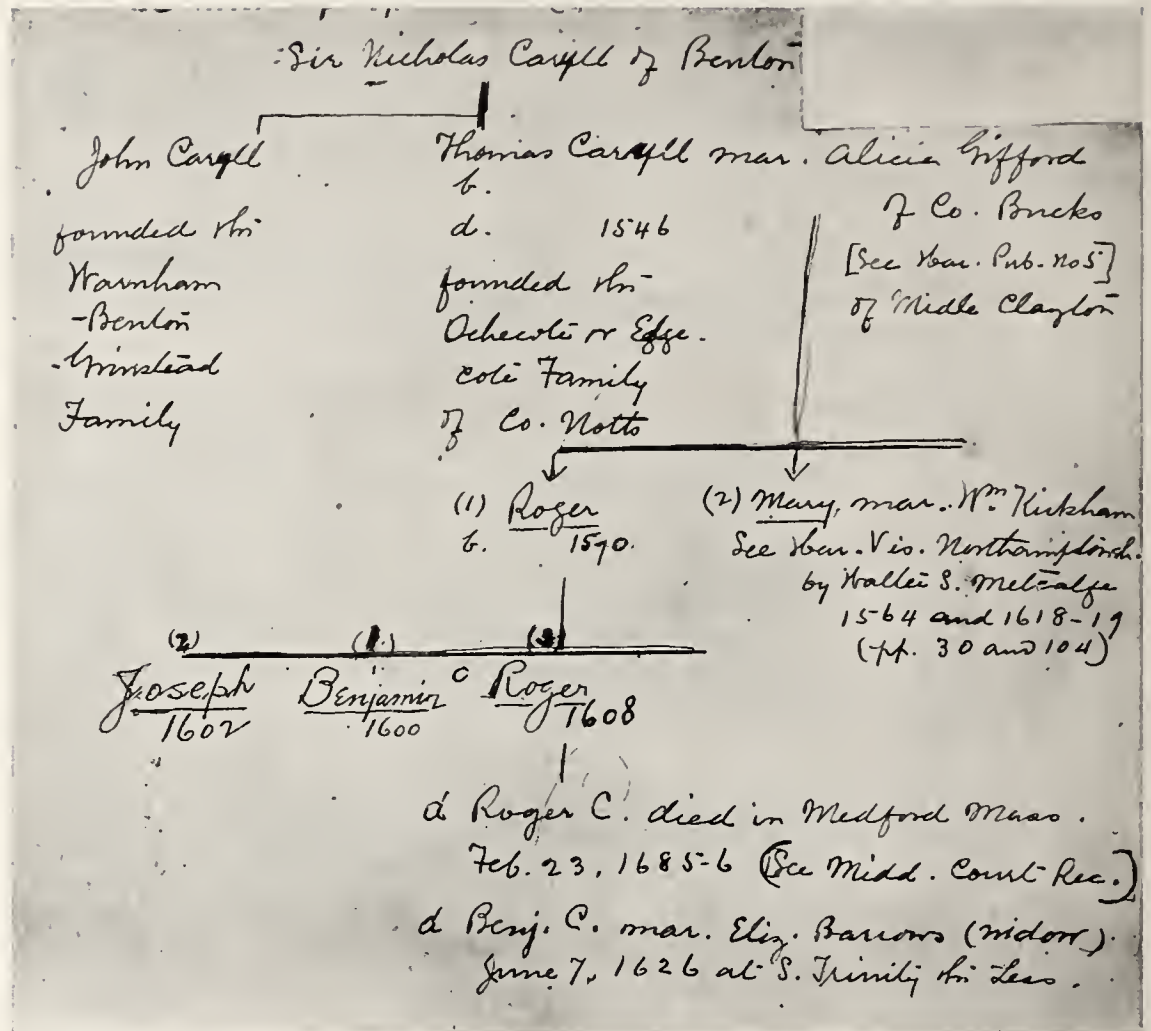 Sir Nicholas Caryll of Benton
John Caryll
founded the
Warnham
-Benton
-Grinstead
Family
Thomas Caryll mar. Alicia Gifford
b.
d. 1546
founded the
Ochecote or Edge-
cote Family
of Co. Notts
of Co. Bucks
[See Har. Pub. No 5]
of Midle Clayton
(1) Roger
b. 1590.
(2) Mary, mar. Wm. Kirkham
See Har. Vis. Northamptonsh.
by Walter S. Metcalfe
1564 and 1618-19
(pp. 30 and 104)
(2) (1.) (3)
Joseph Benjamin Roger
1602 1600 1608
d Roger C. died in Medford Mass.
Feb. 23, 1685-6 (See Midd. Court Rec.)
d Benj. C. mar. Eliz. Barrows (widow).
June 7, 1626 at S. Trinity the Less.